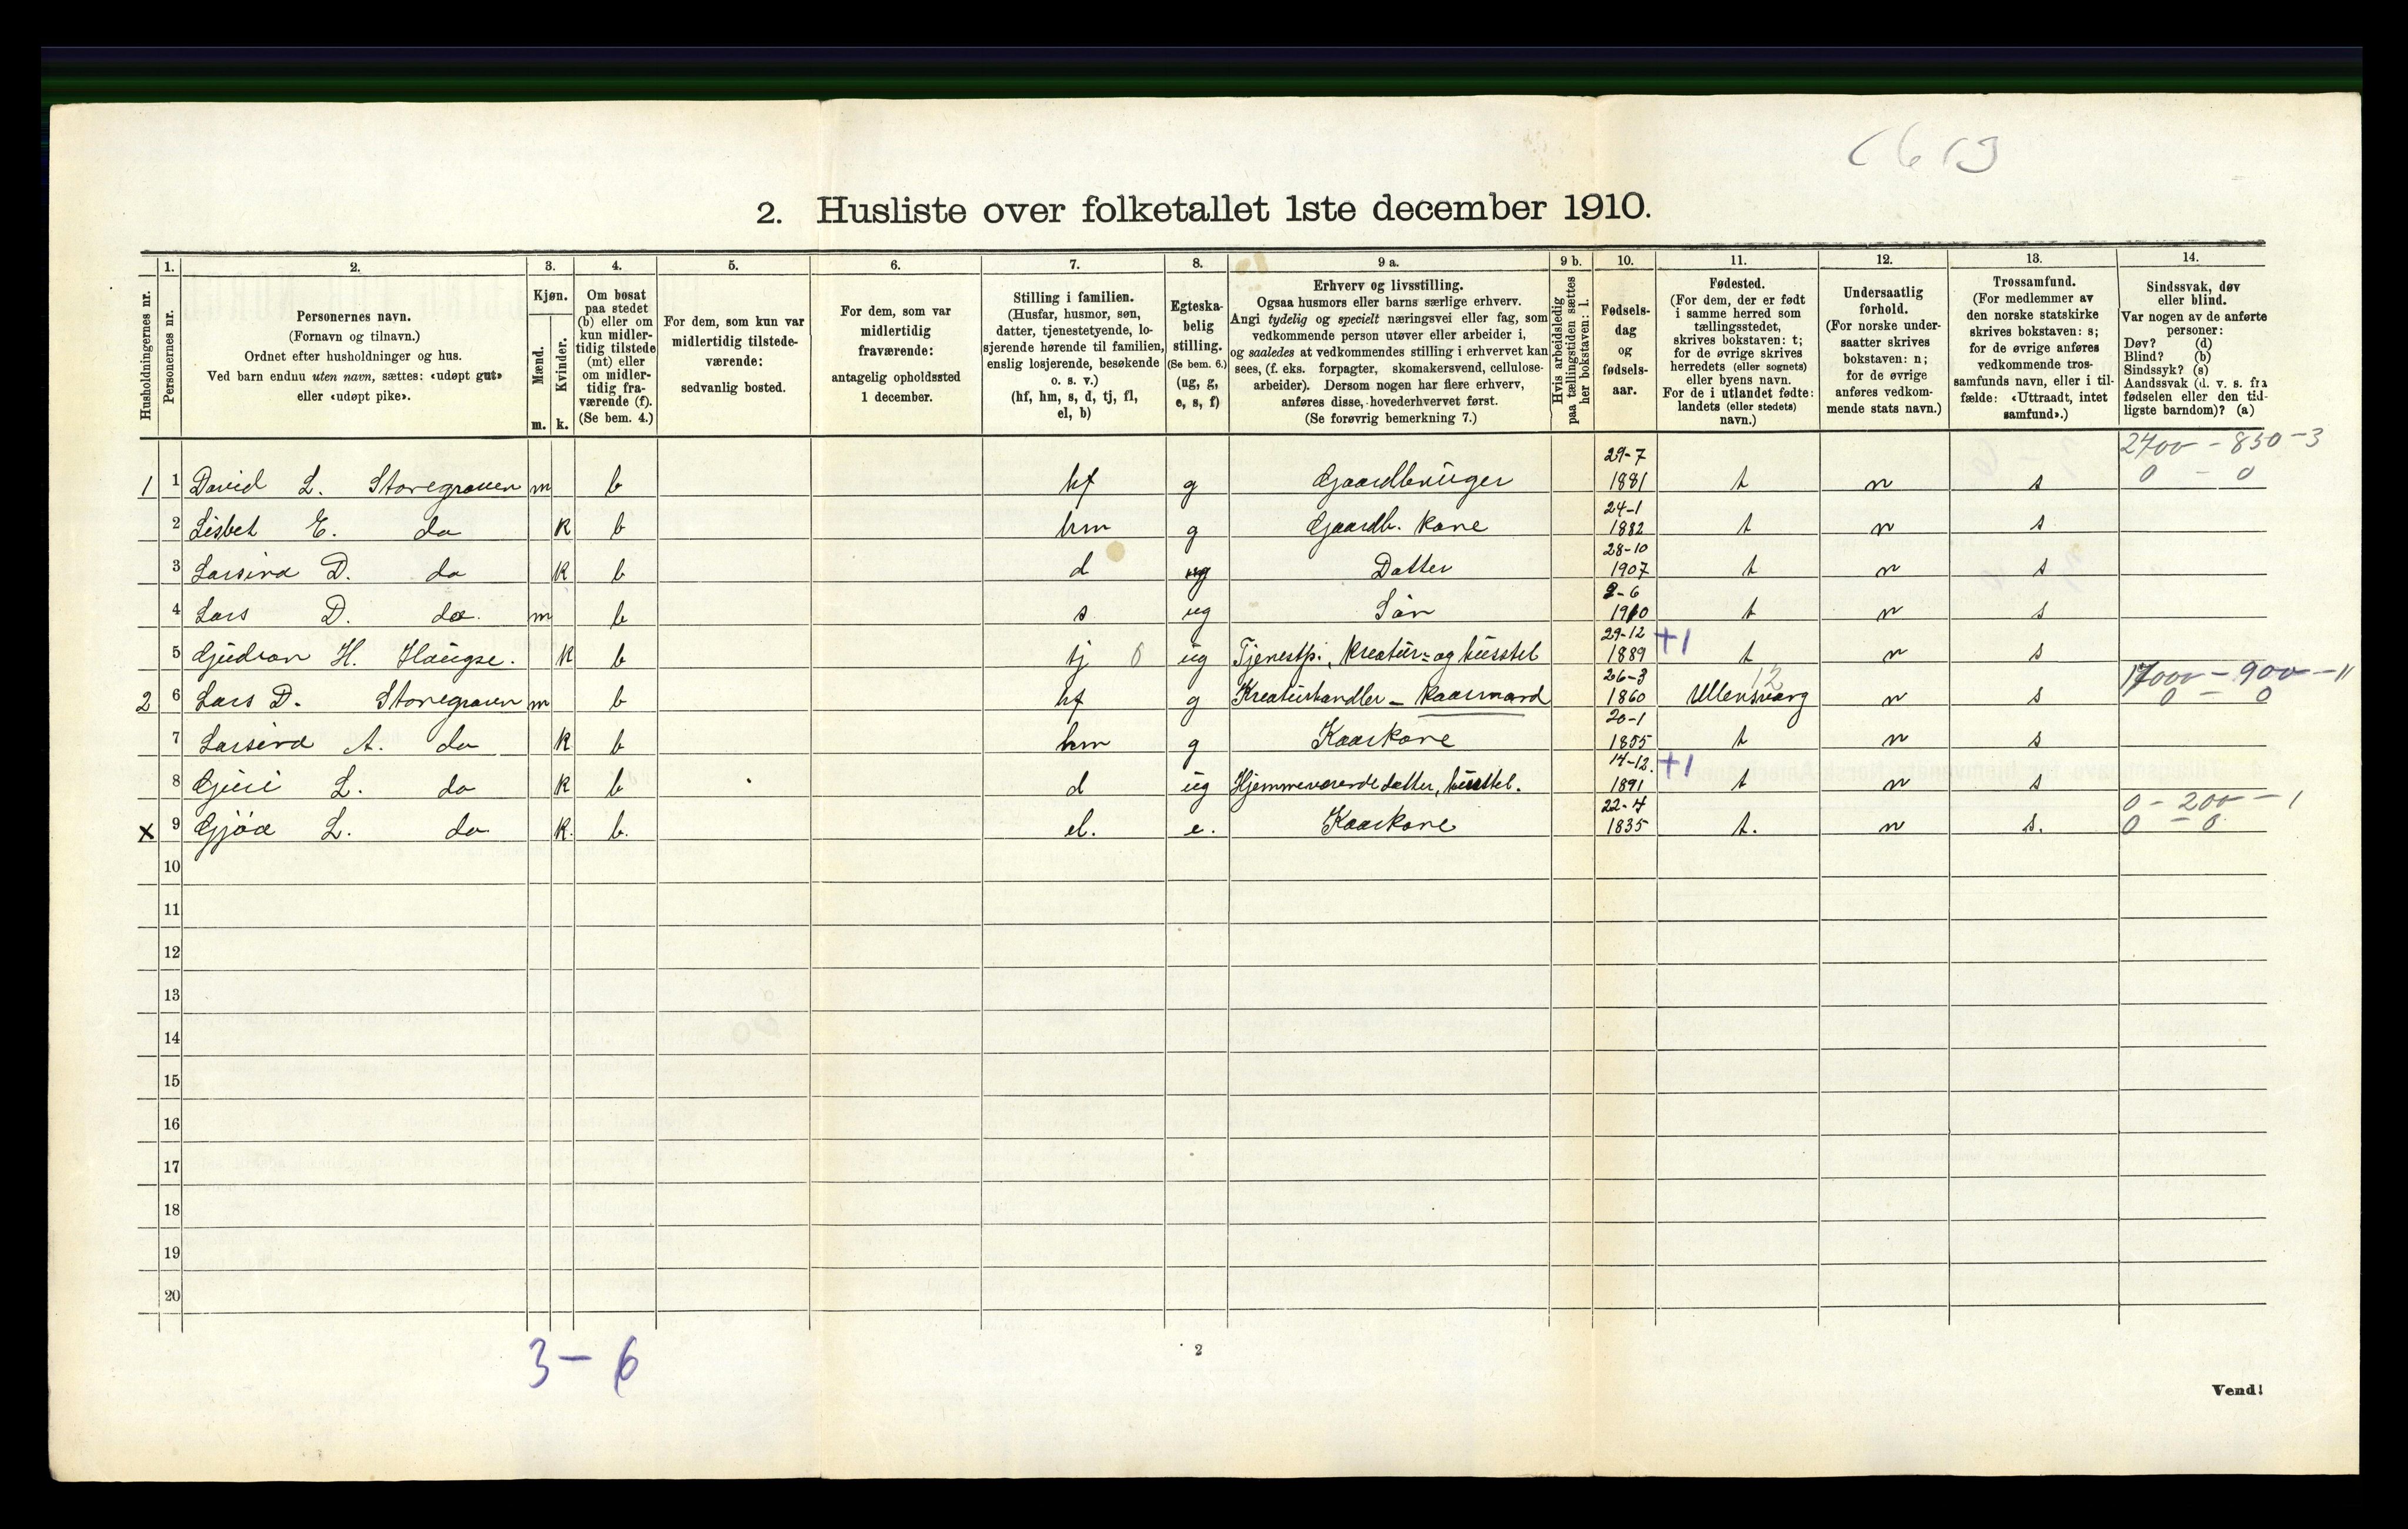 2. Husliste over folketallet 1ste december 1910.
Husholdningernes nr.
1.
Personernes nr.
2.
Personernes navn.
(Fornavn og tilnavn.)
Ordnet efter husholdninger og hus.
Ved barn endnu uten navn, sættes: «udøpt gut»
eller «udøpt pike».
3.
Kjøn.
Mænd.
Kvinder.
m. k.
4.
Om bosat
paa stedet
(b) eller om
kun midler-
tidig tilstede
(mt) eller
om midler-
tidig fra-
værende (f).
(Se bem. 4.)
5.
For dem, som kun var
midlertidig tilstede-
værende:
sedvanlig bosted.
6.
For dem, som var
midlertidig
fraværende:
antagelig opholdssted
1 december.
7.
Stilling i familien.
(Husfar, husmor, søn,
datter, tjenestetyende, lo-
sjerende hørende til familien,
enslig losjerende, besøkende
o. s. v.)
(hf, hm, s, d, tj, fl,
el, b)
8.
Egteska-
belig
stilling.
(Se bem. 6.)
(ug, g,
e, s, f)
9 a.
Erhverv og livsstilling.
Ogsaa husmors eller barns særlige erhverv.
Angi tydelig og specielt næringsvei eller fag, som
vedkommende person utøver eller arbeider i,
og saaledes at vedkommendes stilling i erhvervet kan
sees, (f. eks. forpagter, skomakersvend, cellulose-
arbeider). Dersom nogen har flere erhverv,
anføres disse, hovederhvervet først.
(Se forøvrig bemerkning 7.)
9 b.
Hvis arbeidsledig
paa tællingstiden sættes
her bokstaven: l.
10.
Fødsels-
dag
og
fødsels-
aar.
11.
Fødested.
(For dem, der er født
i samme herred som
tællingsstedet,
skrives bokstaven: t;
for de øvrige skrives
herredets (eller sognets)
eller byens navn.
For de i utlandet fødte:
landets (eller stedets)
navn.)
12.
Undersaatlig
forhold.
(For norske under-
saatter skrives
bokstaven: n;
for de øvrige
anføres vedkom-
mende stats navn.)
13.
Trossamfund.
(For medlemmer av
den norske statskirke
skrives bokstaven: s;
for de øvrige anføres
vedkommende tros-
samfunds navn, eller i til-
fælde: «Uttraadt, intet
samfund».)
14.
Sindssvak, døv
eller blind.
Var nogen av de anførte
personer:
Døv? (d)
Blind? (b)
Sindssyk? (s)
Aandssvak (d. v. s. fra
fødselen eller den tid-
ligste barndom)? (a)
2400 - 850 - 3
1 1 David L. Storegraven m b hf g Gaardbruger 29-7 1881 t n s 0 - 0
2 Lisbet E. do k b hm g Gaardb. kone 24-1 1882 t n s
3 Larsina D. do k b d ug Datter 28-10 1907 t n s
4 Lars D. do. m b s ug Søn 2-6 1910 t n s
5 Gudron H. Haugse. k b tj 0 ug Tjenestp., kreatur- og husstel 29-12 1889 +1 t n s
12 17000 - 900 - 11
2 6 Lars D. Storegraven m b hf g Kreaturhandler - kaarmand 26-3 1860 Ullensvang n s 0 - 0
7 Larsina A. do k b hm g Kaarkone 20-1 1855 t n s
8 Guri L. do k b d ug Hjemmeværende datter, husstel. 14-12. 1891 +1 t n s
0 - 200 - 1
x 9 Gjøa L. do k. b. el. e. Kaarkone 22-4 1835 t. n s. 0 - 0
10
11
12
13
14
15
16
17
18
19
20
3 - 6
2
Vend!